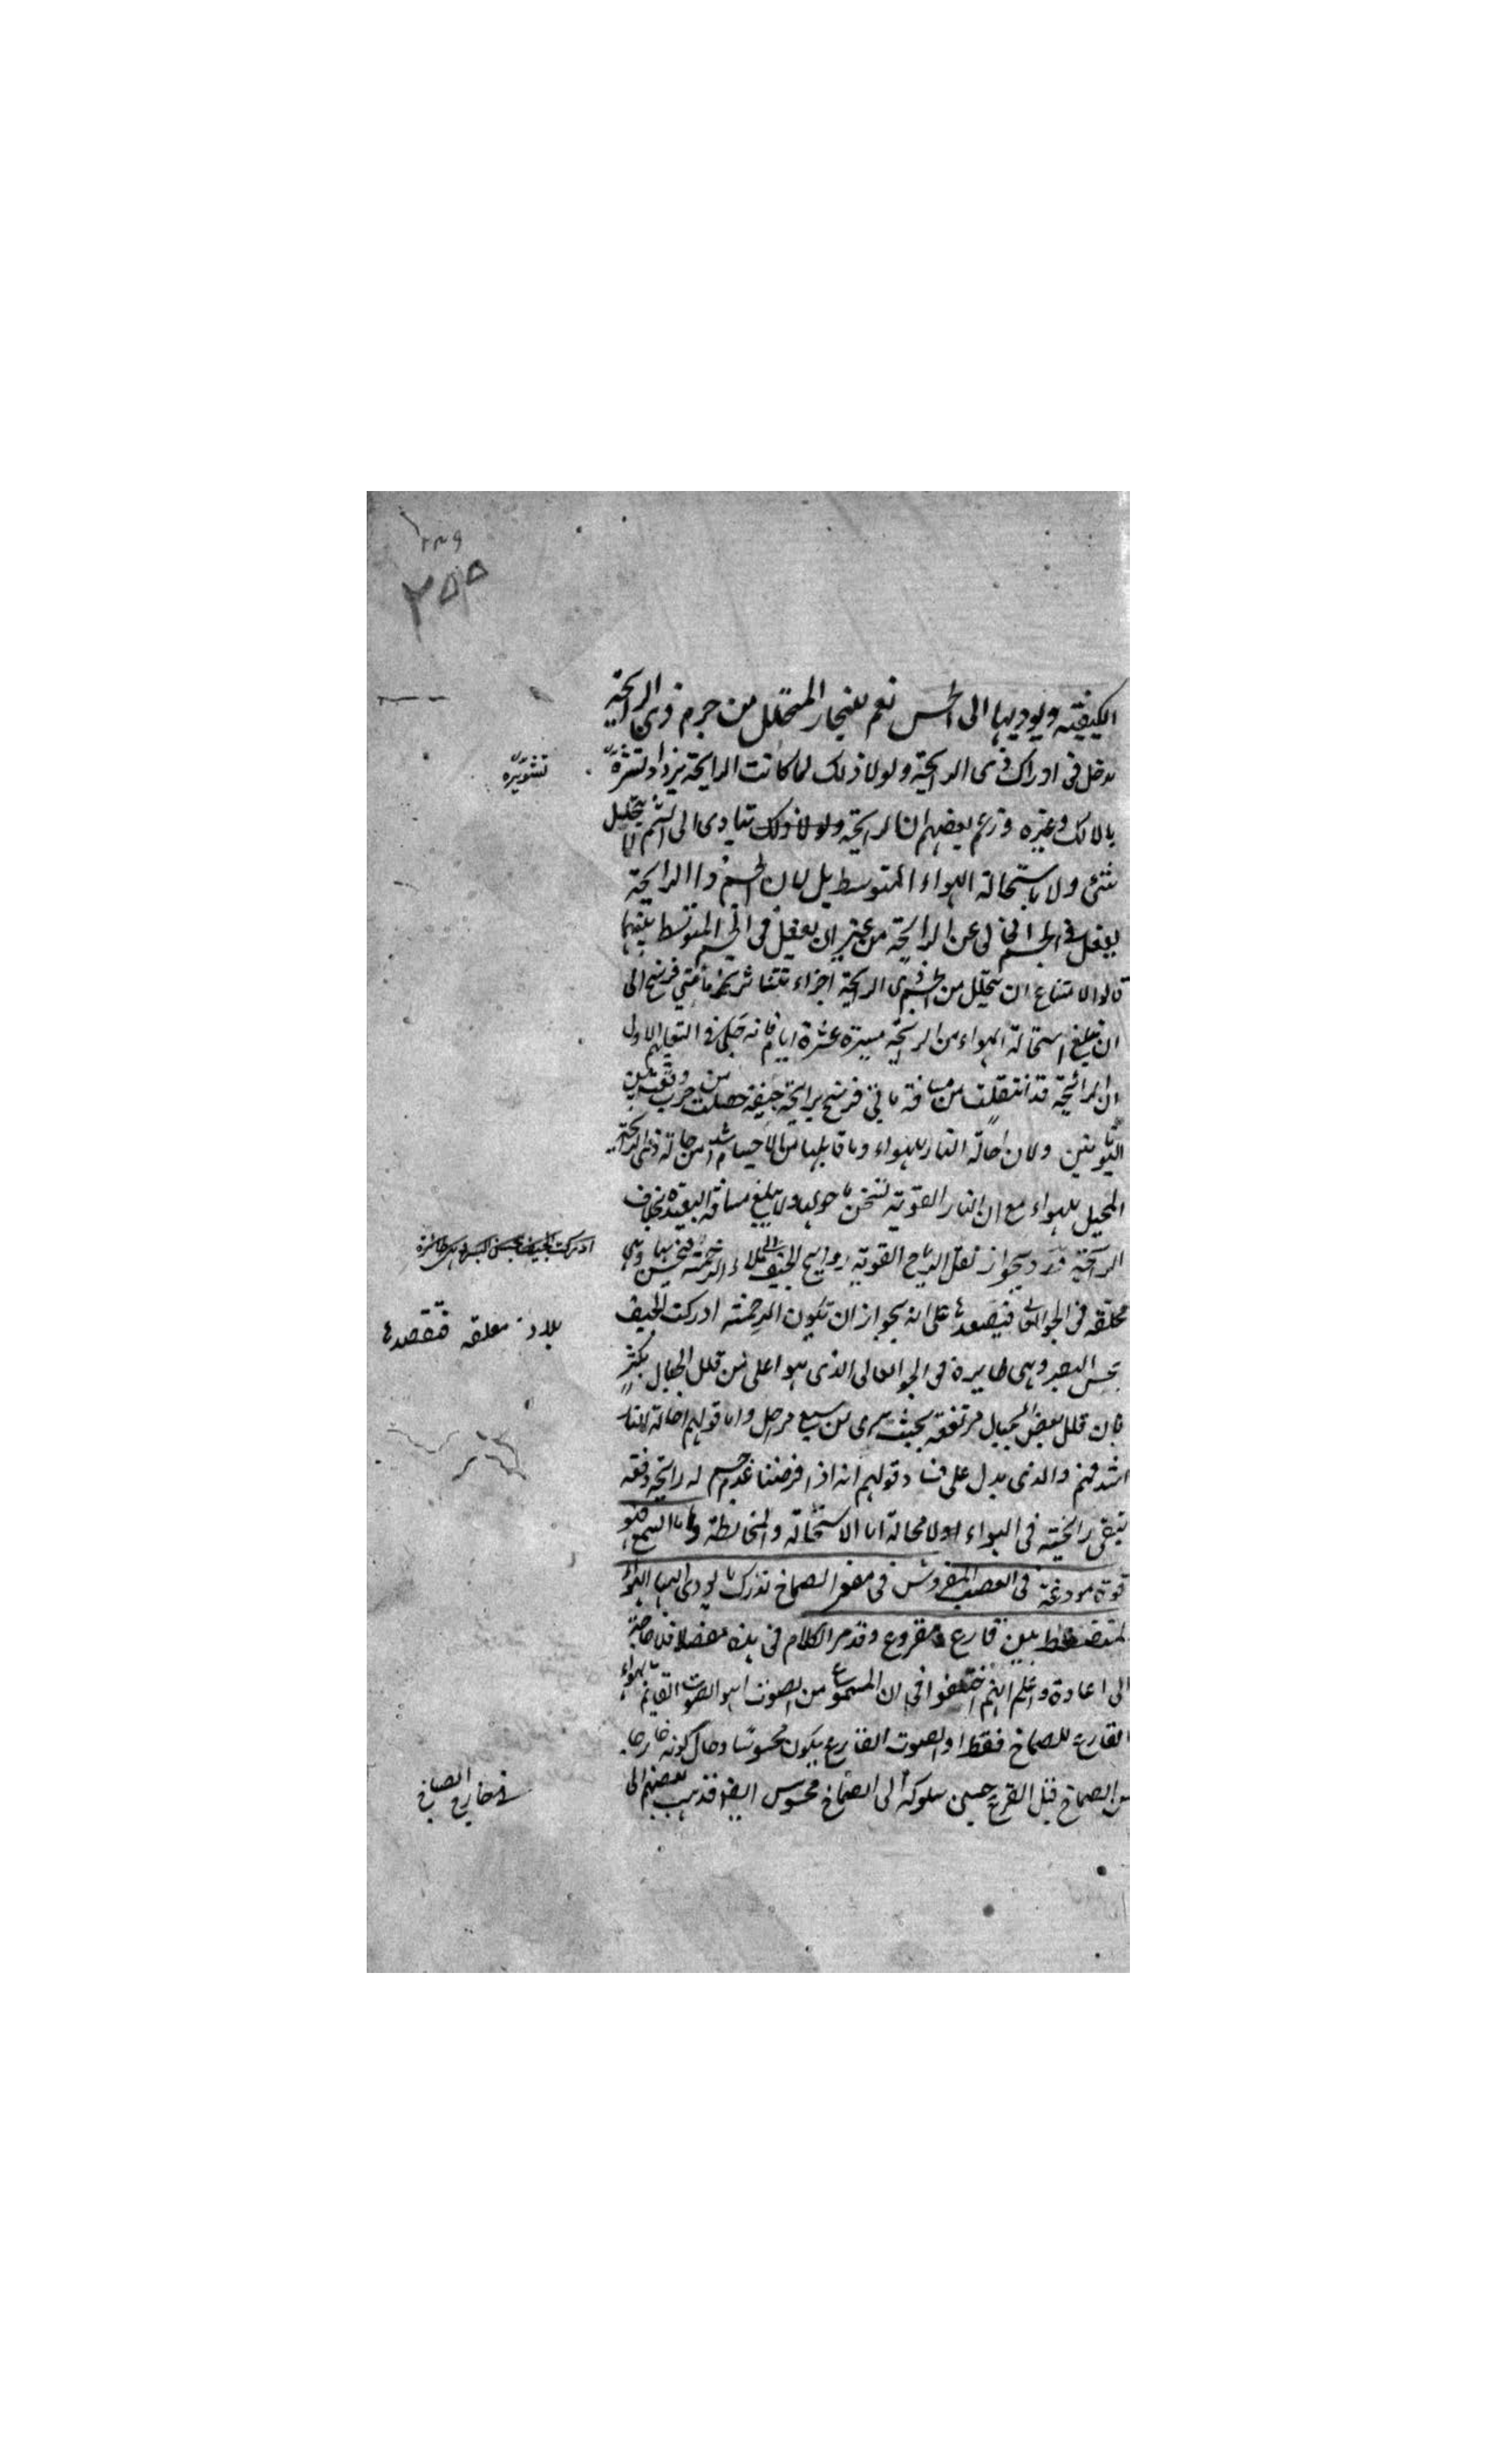 ٢٣٩
٢٥٥
الكيفية ويوديها الى الحس نعم للبخار المتحلل من جرم ذى الرايحة
مدخل فى ادراك ذى الرايحة ولولا ذلك لما كانت الرايحة يزداد نشره
تشويره
بالدلك وغيره وزعم بعضهم ان الرايحة ولولا ذلك تتادى الى الشم لا بتحليل
شئ ولا باستحالة الهواء المتوسط بل لان الجسم ذا الرايحة
يفعل فى الجسم الخالى عن الرايحة من غير ان يفعل فى الجسم المتوسط بينهما
قالوا لامتناع ان يتحلل من الجسم ذى الرايحة اجزاء تنتشر مأتى فرسخ الى
ان تبلغ استحالة الهواء من الرايحة مسيرة عشرة ايام فانه حكى فى التعليم الاول
ان الرائحة قد انتقلت من مسافة مأتى فرسخ برايحة جيفة حصلت من حرب وقعت بين
اليونانيين ولان احالة النار للهواء وما قابلها من الاجسام اشد من احالة ذى الرايحة
المحيل للهواء مع ان النار القوية تسخن ما حولها ولا يبلغ مسافة البعيدة بخلاف
الرايحة ورد بجواز نقل الرياح القوية روايح الجيف الى الرخمة وهى
ادركت الجيف بحس البصر وهى طائرة
محلقة فى الجو العالى فتصعدها على انه يجواز ان تكون الرخمة ادركت الجيف
بلاد معلقه فتقصدها
بحس البصر وهى طايرة فى الجو العالى الذى هو اعلى من قلل الجبال بكثير
فان قلل بعض الجبال مرتفعة بحيث يرى من سبع مراحل واما قولهم احالة النار
اشد فنم والذى يدل على فساد قولهم انه اذا فرضنا عدم جسم له رايحة دفعة
تبقى رايحته فى الهواء اولا محالة اما الاستحالة والمخالطة واما السمع فهو
قوة مودعة فى العصب المفروش فى مقعر الصماخ تدرك ما يودى اليها الهواء
المنضغط بين قارع ومقروع وقد مر الكلام فى هذه مفصلا فلا حاجة
الى اعادة واعلم انهم اختلفوا فى ان المسموع من الصوت اهو الصوت القايم بالهواء
القارع للصماخ فقط او الصوت القارع يكون محسوسا وحال كونه خارجا
من الصماخ قبل القرع حين سلوكه الى الصماخ محسوس ايضا فذهب بعضهم الى
فى خارج الصماخ